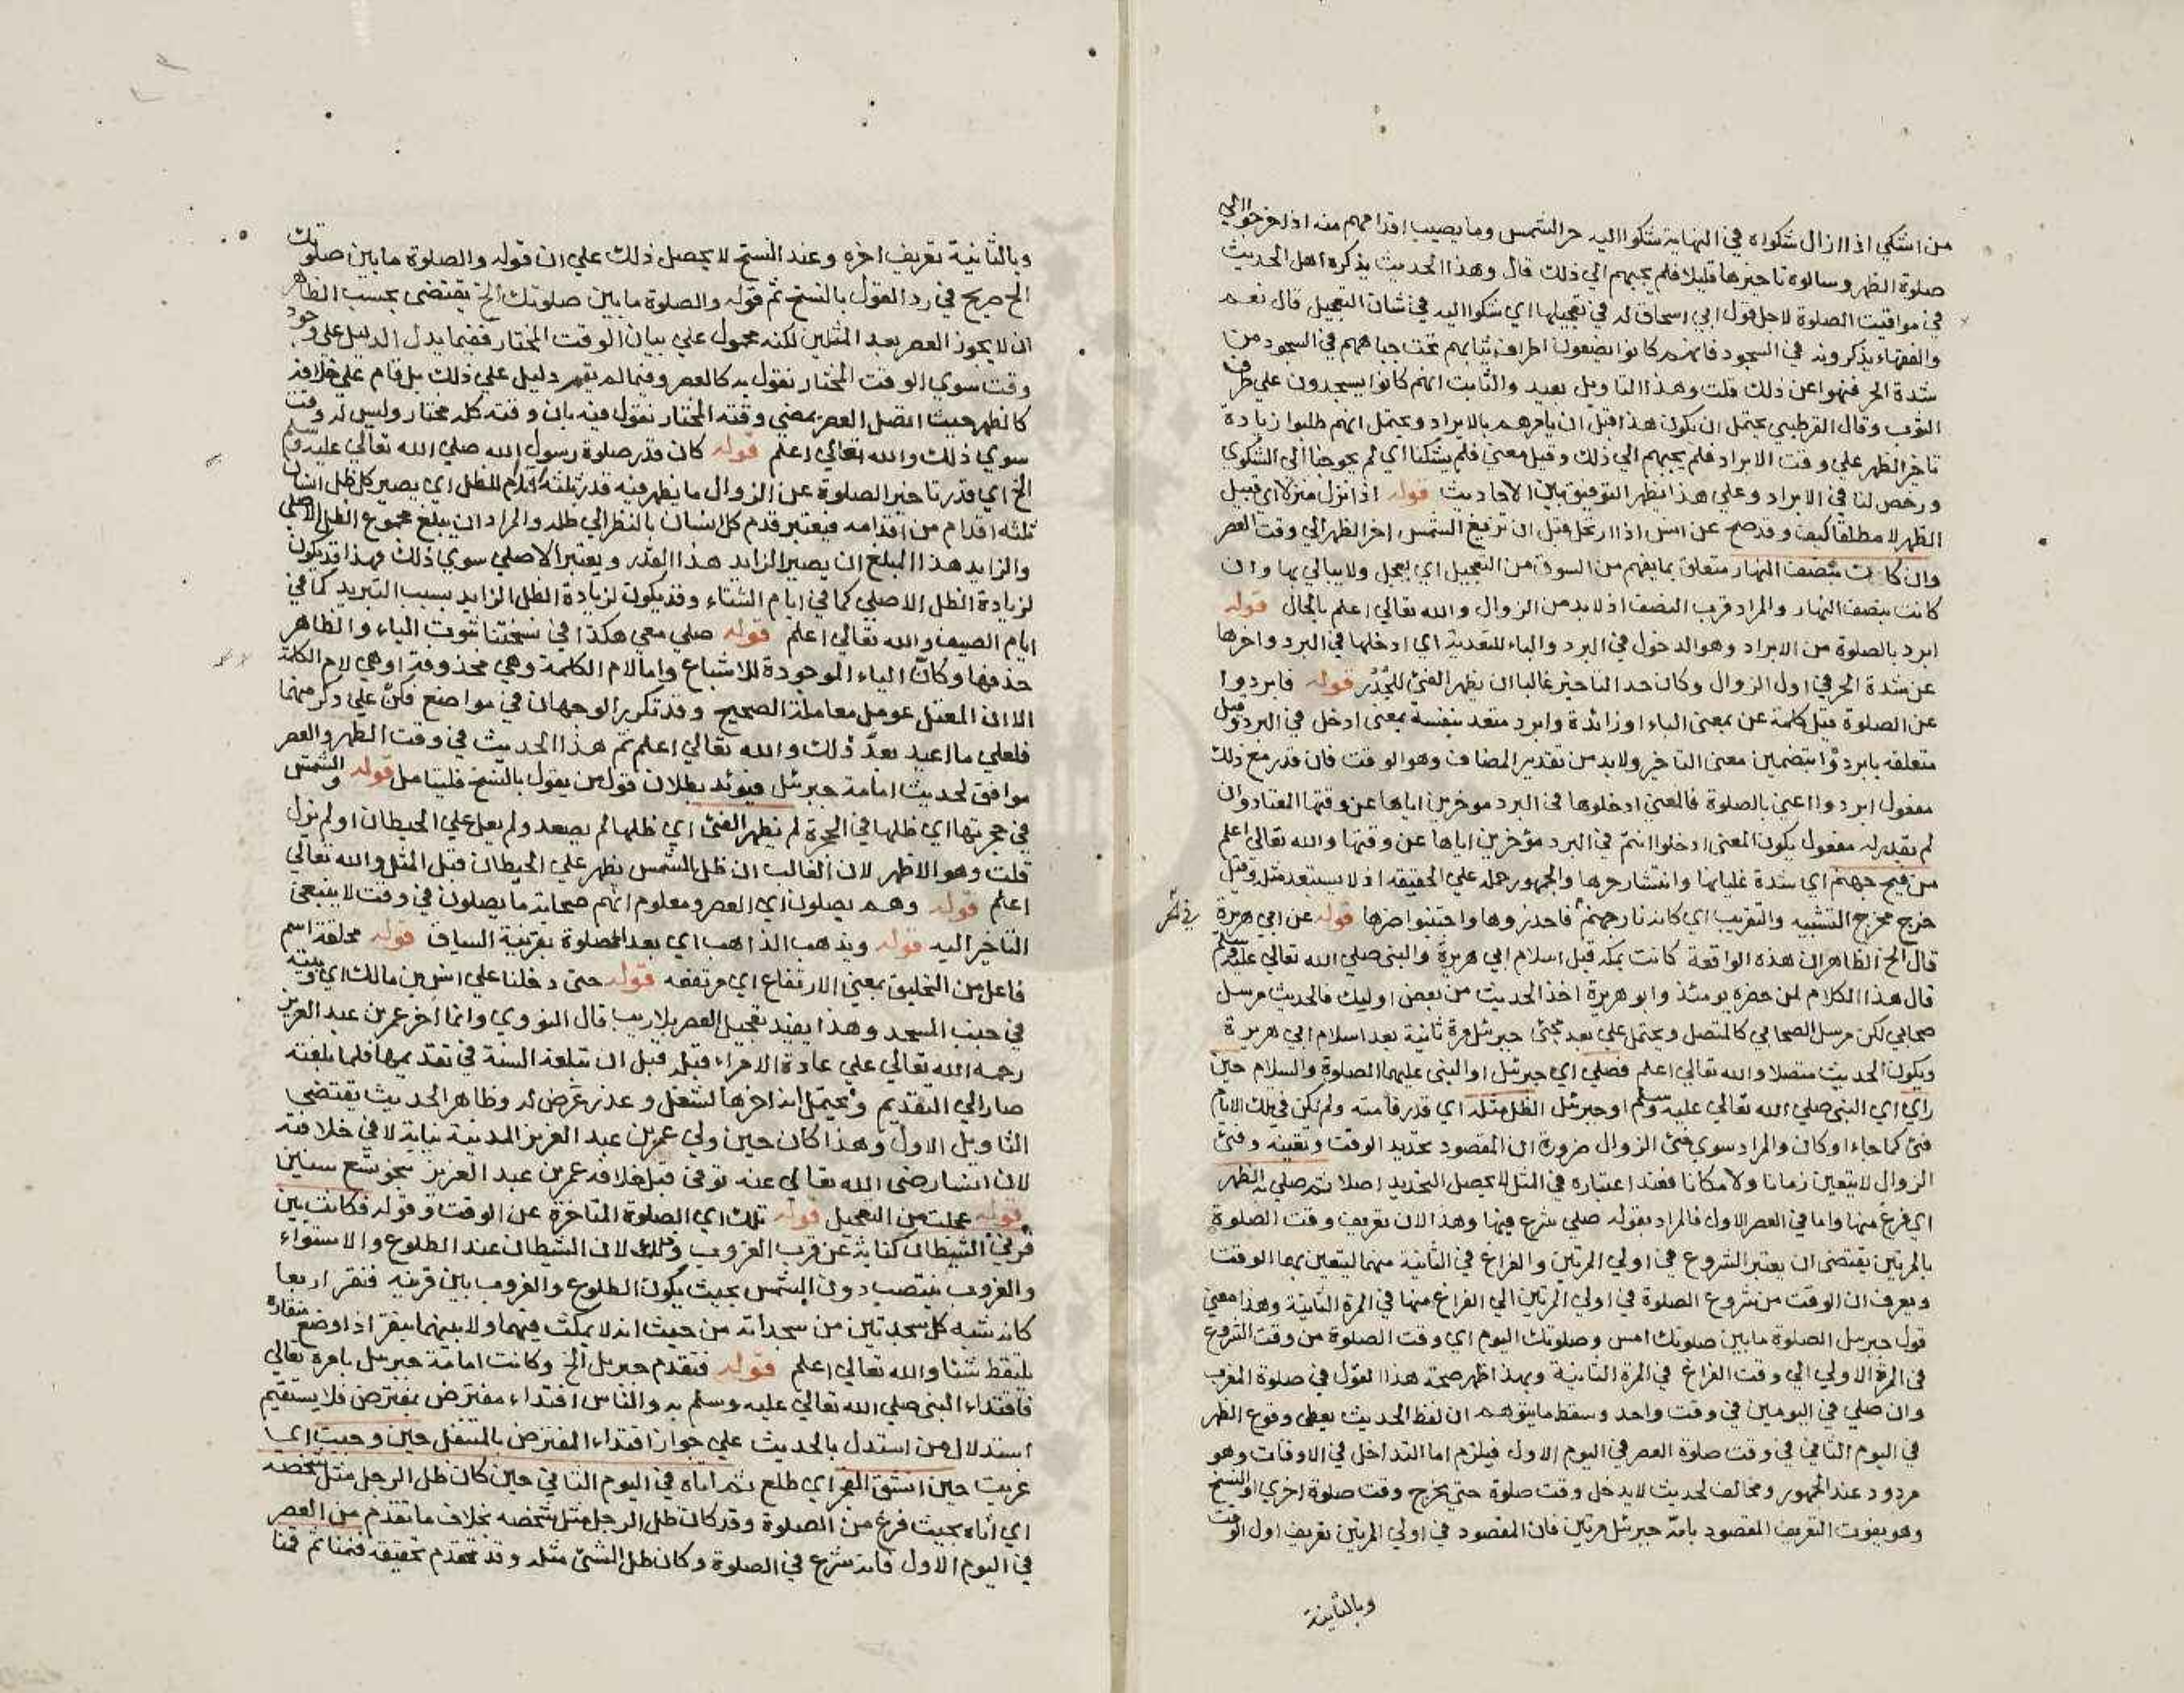 من اشكي اذا ازال شكواه في النهاية شكوا اليه حر الشمس وما يصيب اقدامهم منه اذا خرجوا الي
صلوة الظهر وسالوه تاخيرها قليلا فلم يجبهم الي ذلك قال وهذا الحديث يذكره اهل الحديث
في مواقيت الصلوة لاجل قول ابي اسحاق له في تعجيلها اي شكوا اليه في شان التعجيل قال نعم
والفقهاء يذكرونه في السجود فانهم كانوا يضعون اطراف ثيابهم تحت جباههم في السجود من
شدة الحر فنهوا عن ذلك قلت وهذا التاويل بعيد والثابت انهم كانوا يسجدون علي طرف
الثوب وقال القرطبي يحتمل ان يكون هذا قبل ان يامرهم بالابراد ويحتمل انهم طلبوا زيادة
تاخر الظهر علي وقت الابراد فلم يجبهم الي ذلك وقيل معني فلم يشكنا اي لم يحوجنا الي الشكوي
ورخص لنا في الابراد وعلي هذا يظهر التوفيق بين الاحاديث قوله اذا نزل منزلا اي قبيل
الظهر لا مطلقا كيف وقد صح عن انس اذا ارتحل قبل ان تزيغ الشمس اخر الظهر الي وقت العصر
وان كانت بنصف النهار متعلق بما يفهم من السوق من التعجيل اي يعجل ولا يبالي بها وان
كانت بنصف النهار والمراد قرب النصف اذ لا بد من الزوال والله تعالي اعلم بالحال قوله
ابرد بالصلوة من الابراد وهو الدخول في البرد والباء للتعدية اي ادخلها في البرد واخرها
عن شدة الحر في اول الزوال وكان حد التاخير غالبا ان يظهر الفئ للجدر قوله فابردوا
عن الصلوة قيل كلمة عن بمعني الباء او زائدة وابرد متعد بنفسه بمعني ادخل في البرد وقيل
متعلقه بابردوا بتضمين معني التاخير ولا بد من تقدير المضاف وهو الوقت فان قدر مع ذلك
مفعول ابردوا اعني بالصلوة فالمعني ادخلوها في البرد موخرين اياها عن وقتها المعتاد وان
لم يقدر له مفعول يكون المعني ادخلوا انتم في البرد مؤخرين اياها عن وقتها والله تعالي اعلم
من فيح جهنم اي شدة غليانها وانتشار حرها والجمهور حمله علي الحقيقه اذ لا يستبعد مثله وقيل
خرج مخرج التشبيه والتقريب اي كانه نار جهنم فاحذروها واجتنبوا ضرها قوله عن ابي هريرة
قال الخ الظاهر ان هذه الواقعة كانت بمكه قبل اسلام ابي هريرة والنبي صلي الله تعالي عليه وسلم
قال هذا الكلام لمن حضره يومئذ وابو هريرة اخذ الحديث من بعض اوليك فالحديث مرسل
صحابي لكن مرسل الصحابي كالمتصل ويحتمل علي بعد مجئ جبرئيل مرة ثانية بعد اسلام ابي هريرة
ويكون الحديث متصلا والله تعالي اعلم فصلي اي جبرئيل او النبي عليهما الصلوة والسلام حين
راي اي النبي صلي الله تعالي عليه وسلم او جبرئيل الظل مثله اي قدر قامته ولم يكن في تلك الايام
فئ كما جاء او كان والمراد سوي فئ الزوال ضرورة ان المقصود تحديد الوقت وتعيينه وفئ
الزوال لا يتعين زمانا ولا مكانا فعند اعتباره في المثل لا يحصل التحديد اصلا ثم صلي به الظهر
اي فرغ منها واما في العصر الاول فالمراد بقوله صلي شرع فيها وهذا لان تعريف وقت الصلوة
بالمرتين يقتضي ان يعتبر الشروع في اولي المرتين والفراغ في الثانية منهما ليتعين بهما الوقت
ويعرف ان الوقت من شروع الصلوة في اولي المرتين الي الفراغ منها في المرة الثانية وهذا معني
قول جبرئيل الصلوة ما بين صلوتك امس وصلوتك اليوم اي وقت الصلوة من وقت الشروع
في المرة الاولي الي وقت الفراغ في المرة الثانية وبهذا ظهر صحة هذا القول في صلوة المغرب
وان صلي في اليومين في وقت واحد وسقط ما يتوهم ان لفظ الحديث يعطي وقوع الظهر
في اليوم الثاني في وقت صلوة العصر في اليوم الاول فيلزم اما التداخل في الاوقات وهو
مردود عند الجمهور ومخالف لحديث لا يدخل وقت صلوة حتي يخرج وقت صلوة اخري او النسخ
وهو يفوت التعريف المقصود بامامة جبرئيل مرتين فان المقصود في اولي المرتين تعريف اول الوقت
وبالثانية
وبالثانية تعريف اخره وعند النسخ لا يحصل ذلك علي ان قوله والصلوة ما بين صلوتك
الخ صريح في رد القول بالنسخ ثم قوله والصلوة ما بين صلوتك الخ يقتضي بحسب الظاهر
ان لا يجوز العصر بعد المثلين لكنه محمول علي بيان الوقت المختار ففيما يدل الدليل علي وجود
وقت سوي الوقت المختار نقول به كالعصر وفيما لم يقم دليل علي ذلك بل قام علي خلافه
كالظهر حيث اتصل العصر بمضي وقته المختار نقول فيه بان وقته كله مختار وليس له وقت
سوي ذلك والله تعالي اعلم قوله كان قدر صلوة رسول الله صلي الله تعالي عليه وسلم
الخ اي قدر تاخير الصلوة عن الزوال ما يظهر فيه قدر ثلثة اقدام للظل اي يصير كل ظل انسان
ثلثه اقدام من اقدامه فيعتبر قدم كل انسان بالنظر الي ظله والمراد ان يبلغ مجموع الظل الاصلي
والزايد هذا المبلغ ان يصير الزايد هذا القدر ويعتبر الاصلي سوي ذلك فهذا قد يكون
لزيادة الظل الاصلي كما في ايام الشتاء وقد يكون لزيادة الظل الزايد بسبب التبريد كما في
ايام الصيف والله تعالي اعلم قوله صلي معي هكذا في نسختنا بثبوت الياء والظاهر
حذفها وكان الياء الموجودة للاشباع واما لام الكلمة وهي محذوفة او هي لام الكلمة
الا ان المعتل عومل معاملة الصحيح وقد تكرر الوجهان في مواضع فكن علي ذكر منهما
فلعلي ما اعيد بعد ذلك والله تعالي اعلم ثم هذا الحديث في وقت الظهر والعصر
موافق لحديث امامة جبرئيل فيوئد بطلان قول من يقول بالنسخ فليتامل قوله والشمس
في حجرتها اي ظلها في الحجرة لم يظهر الفئ اي ظلها لم يصعد ولم يعل علي الحيطان او لم يزل
قلت وهو الاظهر لان الغالب ان ظل الشمس يظهر علي الحيطان قبل المثل والله تعالي
اعلم قوله وهم يصلون اي العصر ومعلوم انهم صحابة ما يصلون في وقت لا ينبغي
التاخير اليه قوله ويذهب الذاهب اي بعد الصلوة بقرينة السياق قوله محلقة اسم
فاعل من التحليق بمعني الارتفاع اي مرتفعه قوله حتي دخلنا علي انس بن مالك اي وبيته
في جنب المسجد وهذا يفيد تعجيل العصر بلا ريب قال النووي وانما اخر عمر بن عبد العزيز
رحمه الله تعالي علي عادة الامراء قبله قبل ان تبلغه السنة في تقديمها فلما بلغته
صار الي التقديم ويحتمل انه اخرها لشغل وعذر عرض له وظاهر الحديث يقتضي
التاويل الاول وهذا كان حين ولي عمر بن عبد العزيز المدينة نيابة لا في خلافته
لان انسا رضي الله تعالي عنه توفي قبل خلافة عمر بن عبد العزيز بنحو تسع سنين
قوله عجلت من التعجيل قوله تلك اي الصلوة المتاخرة عن الوقت وقوله فكانت بين
قرني الشيطان كناية عن قرب الغروب وذلك لان الشيطان عند الطلوع والاستواء
والغروب ينتصب دون الشمس بحيث يكون الطلوع والغروب بين قرنيه فنقر اربعا
كانه شبه كل سجدتين من سجداته من حيث انه لا يمكث فيهما ولا بينهما بنقر اذا وضع منقاره
يلتقط شئا والله تعالي اعلم قوله فتقدم جبرئيل الخ وكانت امامة جبرئيل بامره تعالي
فاقتداء النبي صلي الله تعالي عليه وسلم به والناس اقتداء مفترض بمفترض فلا يستقيم
استدلال من استدل بالحديث علي جواز اقتداء المفترض بالمتنفل حين وجبت اي
غربت حين انشق الفجر اي طلع ثم اتاه في اليوم الثاني حين كان ظل الرجل مثل شخصه
اي اتاه بحيث فرغ من الصلوة وقد كان ظل الرجل مثل شخصه بخلاف ما تقدم من العصر
في اليوم الاول فانه شرع في الصلوة وكان ظل الشئ مثله وقد تقدم تحقيقه فنمنا ثم قمنا